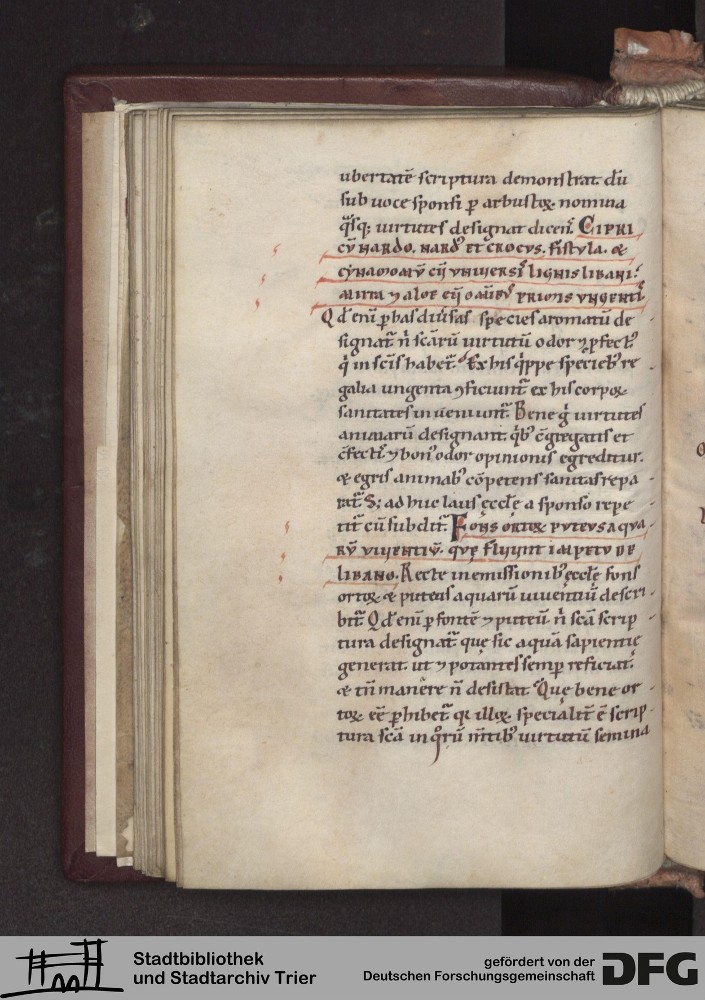 ubertatē scriptura demonstrat. dū
sub uoce sponsi ꝑ arbustoꝝ nomina
q̄sq; uirtutes designat dicen̄. CIPRI
CŪ NARDO. NARD᷒ ET CROCVS. FISTVLA. &
CYNAMOMŪ CŪ VNIVERSIS LIGNIS LIBANI.
MIRRA ⁊ ALOE CŪ OMIBꝰ PRIMIS VNGENTIS
Qd̄ enī ꝑ has diuersas species aromatū de
signat᷑ ñ scārū uirtutū odor ⁊ ꝑfect᷒
q̇ in scīs habet᷑. Ex his q̇ppe specieb᷒ re
galia ungenta ꝯficiunt᷑ ex his corpoꝝ
sanitates inueniunt᷑. Bene g̊ uirtutes
animarū designant. q̇b᷒ cōgregatis et
cōfectis ⁊ bon᷒ odor opinionis egreditur.
& egris animab᷒ cōpetens sanitas repa
rat᷑. S; adhuc laus eccłe a sponso repe
tit᷑ cū subdit᷑. FONS ORTOꝜ PVTEVS AQVA
RV̄ VIVENTIV̄. QVĘ FLVVNT IMPETV DE
LIBANO. Recte in emissionib᷒ eccłe fons
ortoꝝ & puteus aquarū uiuentiū descri
bit᷑. Qd̄ enī ꝑ fontē ⁊ puteū. ñ scā scrip
tura designat᷑. que sic aquā sapientię
generat. ut ⁊ potantes semꝑ reficiat.
& tn̄ manere ñ desistat. Que bene or
toꝝ eē ꝑhibet᷑. qa illoꝝ specialit᷑ ē scrip
tura scā in qͦrū m̄tib᷒ uirtutū semina
Stadtbibliothek
und Stadtarchiv Trier
gefördert von der
Deutschen Forschungsgemeinschaft
DFG